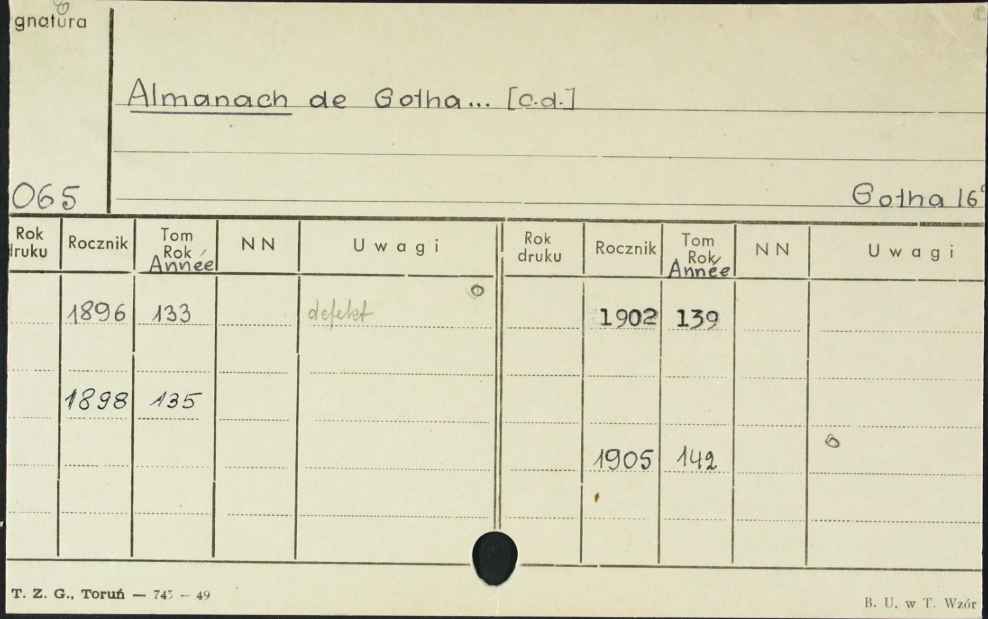 gnatura
Almanach de Gotha... [c.d.]
065
Gotha 16°
Rok druku Rocznik Tom Rok Année NN Uwagi Rok druku Rocznik Tom Rok Année NN Uwagi
1896 133 defekt 1902 139
1898 135
1905 142
T. Z. G., Toruń — 745 — 49
B. U. w T. Wzór